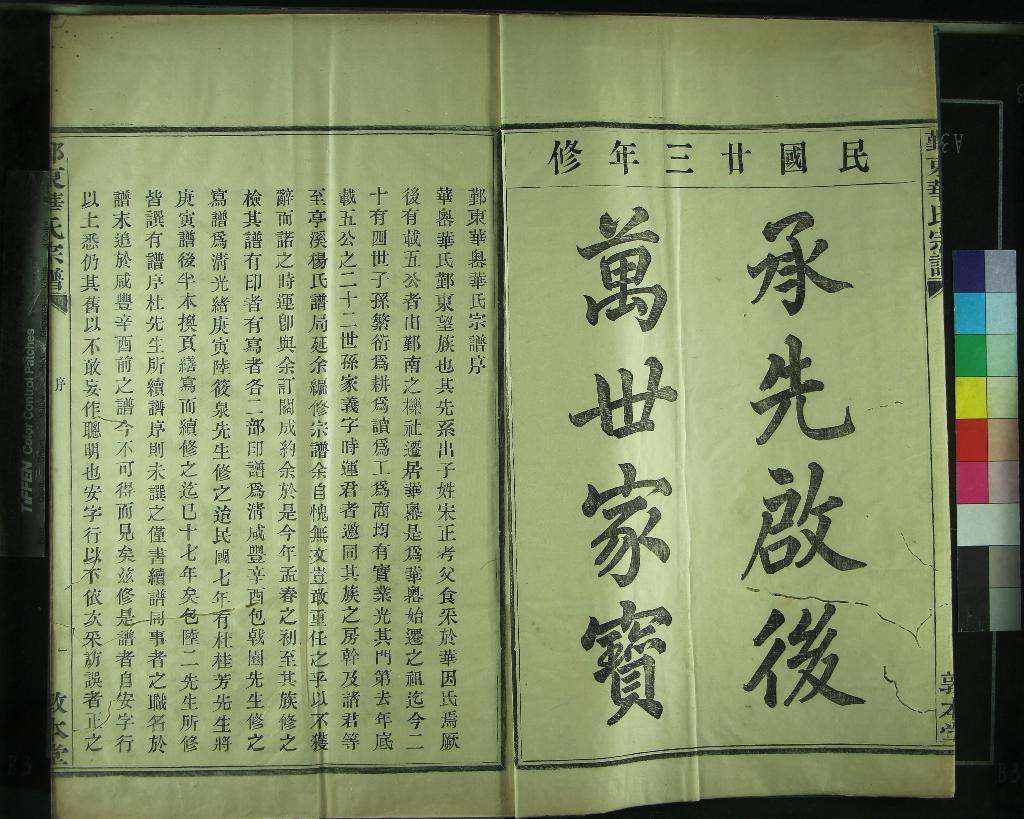 民國廿三年修
承先啟後
萬世家寶
鄞東華氏宗譜
敦本堂
鄞東華嶴華氏宗譜序
華嶴華氏鄞東望族也其先系出子姓宋正考父食采於華因氏焉厥
後有載五公者由鄞南之櫟社遷居華嶴是爲華嶴始遷之祖迄今二
十有四世子孫繁衍爲耕爲讀爲工爲商均有實業光其門第去年底
載五公之二十二世孫家義字時運君者邀同其族之房幹及諸君等
至亭溪楊氏譜局延余編修宗譜余自愧無文豈敢重任之乎以不獲
辭而諾之時運卽與余訂關成約余於是今年孟春之初至其族修之
檢其譜有印者有寫者各二部印譜爲清咸豐辛酉包戟園先生修之
寫譜爲清光緒庚寅陸筱泉先生修之迨民國七年有杜桂芳先生將
庚寅譜後半本換頁繕寫而續修之迄已十七年矣包陸二先生所修
皆譔有譜序杜先生所續譜序則未譔之僅書續譜同事者之職名於
譜末追於咸豐辛酉前之譜今不可得而見矣茲修是譜者自安字行
以上悉仍其舊以不敢妄作聰明也安字行以下依次采訪誤者正之
鄞東華氏宗譜
序
一
敦本堂
TIFFEN Color Control Patches
B3